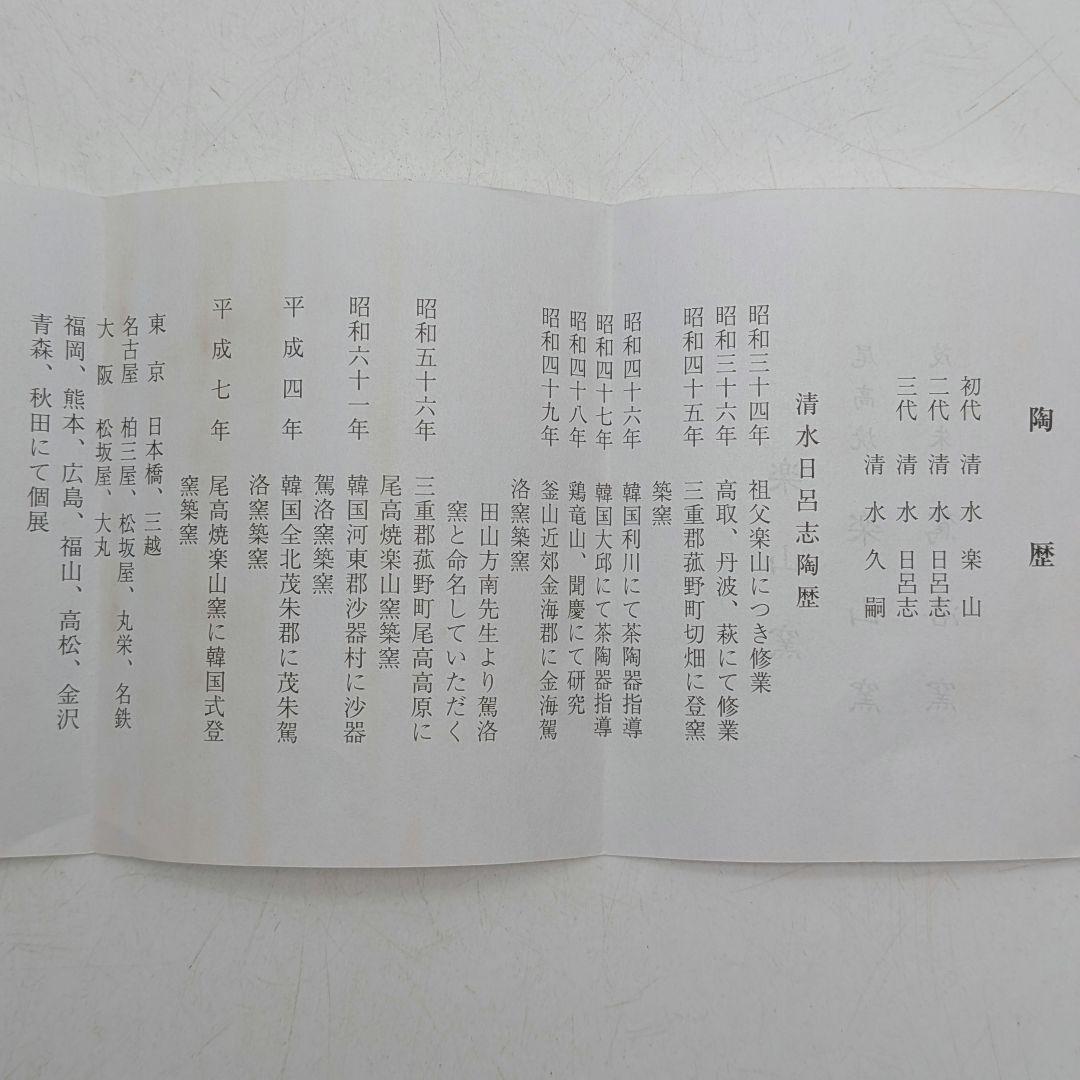 陶歴
初代 清水楽山
二代 清水日呂志
三代 清水日呂志
清水久嗣
清水日呂志陶歴
昭和三十四年 祖父楽山につき修業
昭和三十六年 高取、丹波、萩にて修業
昭和四十五年 三重郡菰野町切畑に登窯
築窯
昭和四十六年 韓国利川にて茶陶器指導
昭和四十七年 韓国大邱にて茶陶器指導
昭和四十八年 鶏竜山、聞慶にて研究
昭和四十九年 釜山近郊金海郡に金海駕
洛窯築窯
田山方南先生より駕洛
窯と命名していただく
昭和五十六年 三重郡菰野町尾高高原に
尾高焼楽山窯築窯
昭和六十一年 韓国河東郡沙器村に沙器
駕洛窯築窯
平成四年 韓国全北茂朱郡に茂朱駕
洛窯築窯
平成七年 尾高焼楽山窯に韓国式登
窯築窯
東京 日本橋、三越
名古屋 柏三屋、松坂屋、丸栄、名鉄
大阪 松坂屋、大丸
福岡、熊本、広島、福山、高松、金沢
青森、秋田にて個展